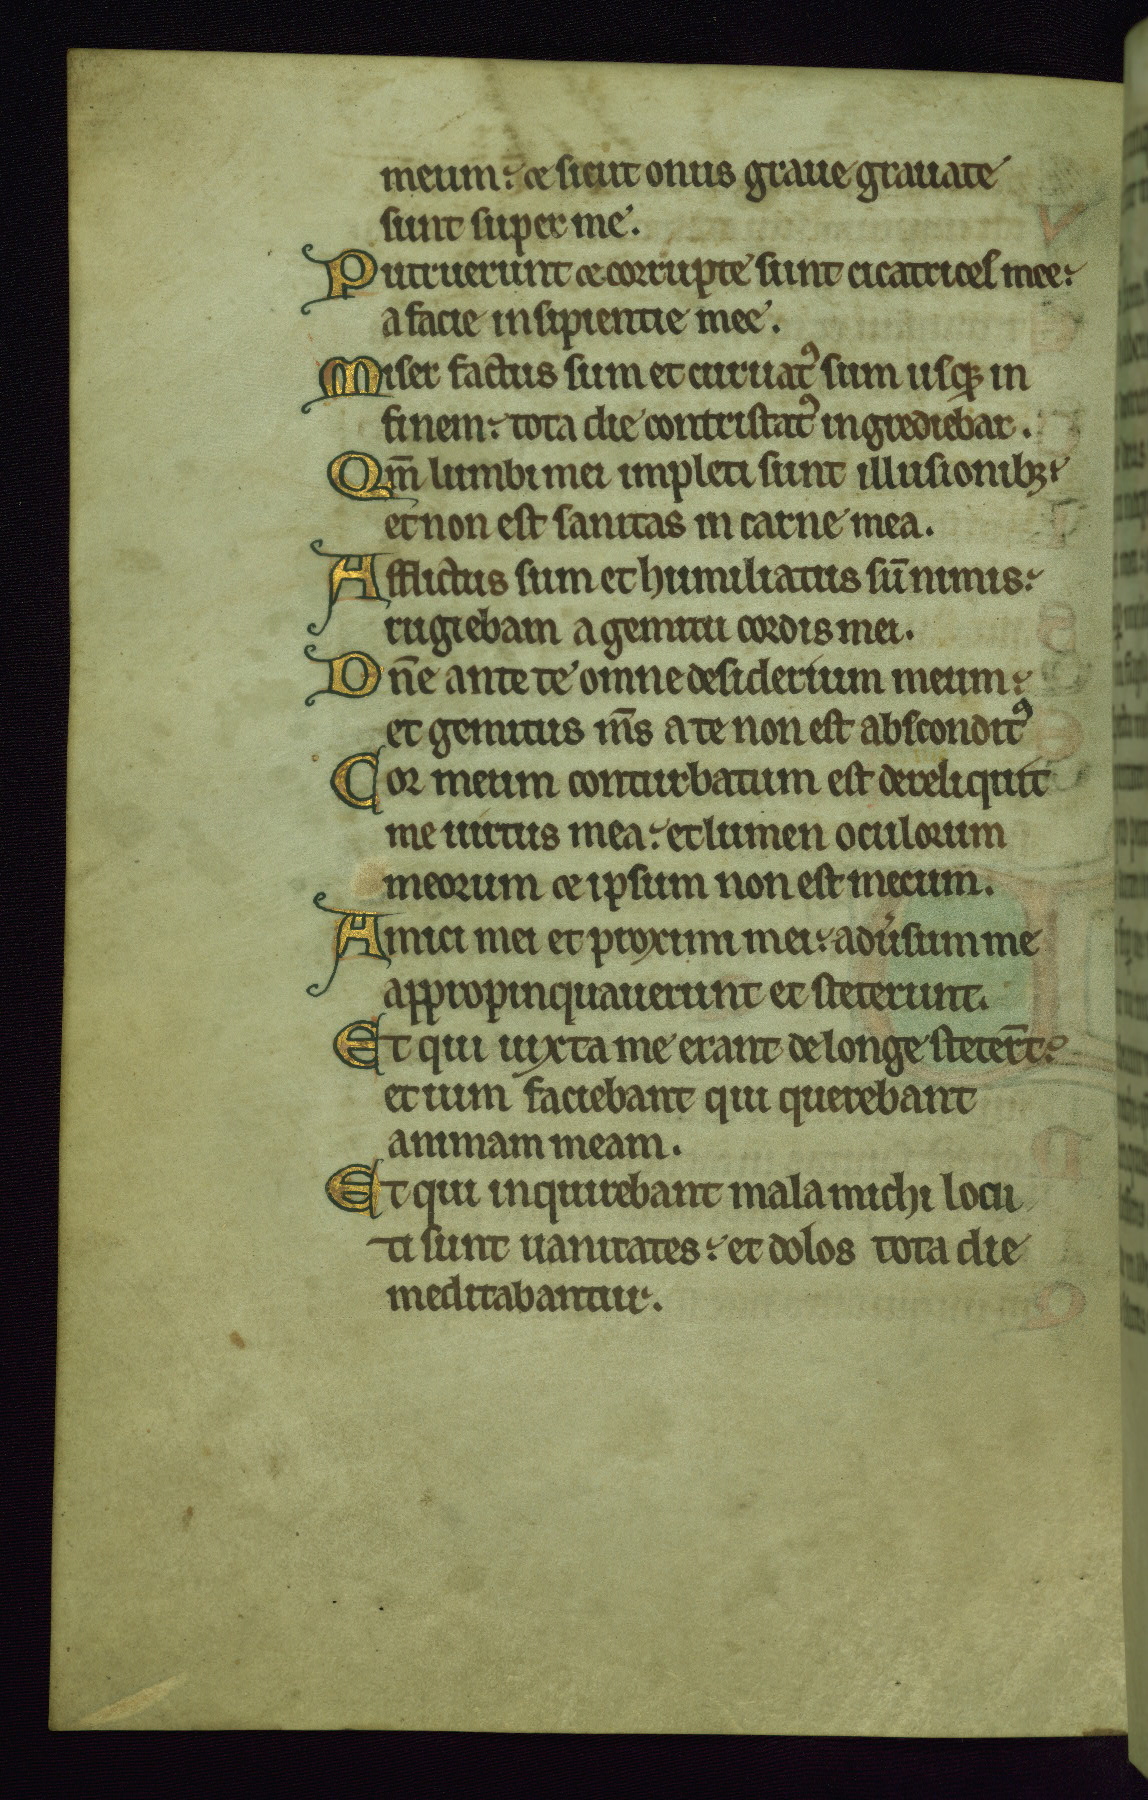 meum: & sicut onus graue grauate
sunt super me.
Putruerunt & corrupte sunt cicatrices mee:
a facie insipientie mee.
Miser factus sum et curuatꝰ sum usqꝫ in
finem: tota die contristatꝰ ingrediebar.
Qm̄ lumbi mei impleti sunt illusionibꝫ:
et non est sanitas in carne mea.
Afflictus sum et humiliatus sū nimis:
rugiebam a gemitu cordis mei.
Dn̄e ante te omne desiderium meum:
et gemitus m̄s a te non est absconditꝰ
Cor meum conturbatum est dereliquit
me uirtus mea: et lumen oculorum
meorum & ipsum non est mecum.
Amici mei et proximi mei: adu̓sum me
appropinquauerunt et steterunt.
Et qui iuxta me erant de longe steter̄t:
et uim faciebant qui querebant
animam meam.
Et qui inquirebant mala michi locu
ti sunt uanitates: et dolos tota die
meditabantur.